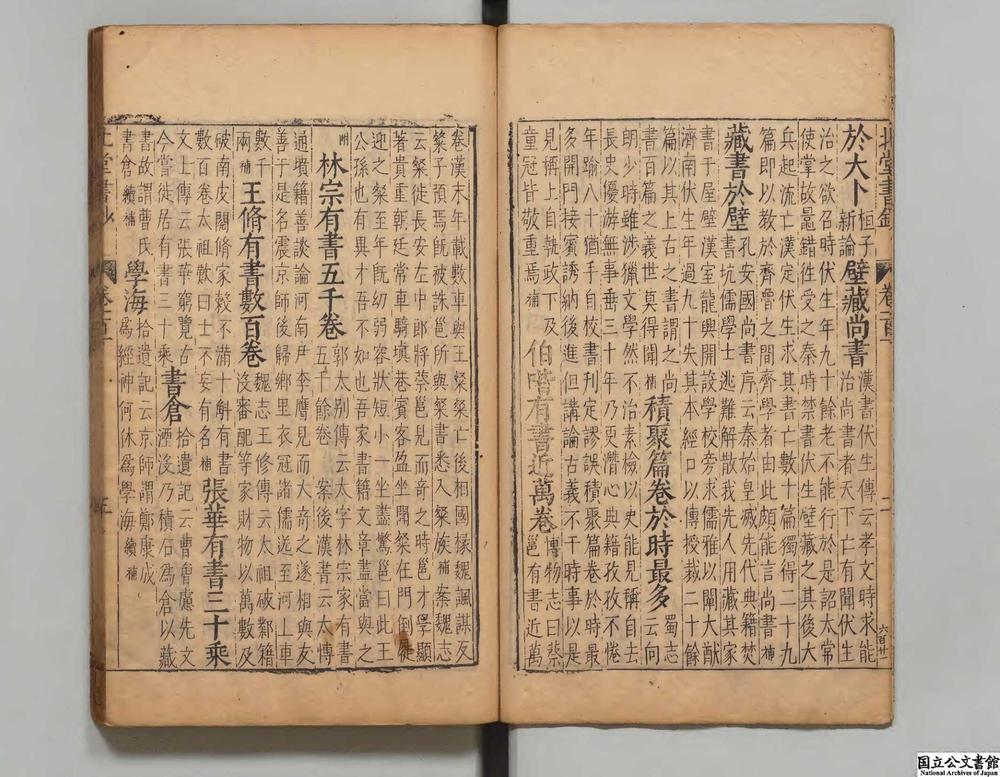 北堂書鈔 卷一百一 二 六百廿
於大卜 桓子新論 壁藏尚書 漢書伏生傳云孝文時求能治尚書者天下亡有聞伏生
治之欲召時伏生年九十餘老不能行於是詔太常
使掌故鼂錯徃受之秦時禁書伏生壁藏之其後大
兵起流亡漢定伏生求其書亡數十篇獨得二十九
篇即以教於齊魯之間齊學者由此頗能言尚書補
藏書於壁 孔安國尚書序云秦始皇滅先代典籍焚書坑儒學士逃難解散我先人用藏其家
書于屋壁漢室龍興開設學校旁求儒雅以闡大猷
濟南伏生年過九十失其本經口以傳授裁二十餘
篇以其上古之書謂之尚書百篇之義世莫得聞補 積聚篇卷於時最多 蜀志云向
朗少時雖涉獵文學然不治素檢以吏能見稱自去
長史優游無事垂三十年乃更潛心典籍孜孜不倦
年踰八十猶手自校書刊定謬誤積聚篇卷於時最
多開門接賓誘納後進但講論古義不干時事以是
見稱上自執政下及童冠皆敬重焉補 伯喈有書近萬卷 博物志曰蔡邕有書近萬
卷漢末年載數車與王粲粲亡後相國掾魏諷謀反
粲子預焉旣被誅邕所與粲書悉入粲族補案魏志
云粲徙長安左中郎將蔡邕見而奇之時邕才學顯
著貴重朝廷常車騎填巷賓客盈坐聞粲在門倒徙
迎之粲至年旣幼弱容狀短小一坐盡驚邕曰此王
公孫也有異才吾不如也吾家書籍文章盡當與之
林宗有書五千卷 郭太別傳云太字林宗家有書五千餘卷 案後漢書云太博
通墳籍善談論河南尹李膺見而大奇之遂相與友
善于是名震京師後歸鄉里衣冠諸儒送至河上車
數千兩補 王脩有書數百卷 魏志王修傳云太祖破鄴籍沒審配等家財物以萬數及
破南皮閱脩家穀不滿十斛有書數百卷太祖歎曰士不妄有名補 張華有書三十乘
文士傳云張華窮覽古今嘗徙居有書三十乘 書倉 拾遺記云曹曾慮先文湮沒乃積石為倉以藏
書故謂曹氏書倉續補 學海 拾遺記云京師謂鄭康成為經神何休為學海續補
北堂書鈔 卷一百一
国立公文書館
National Archives of Japan